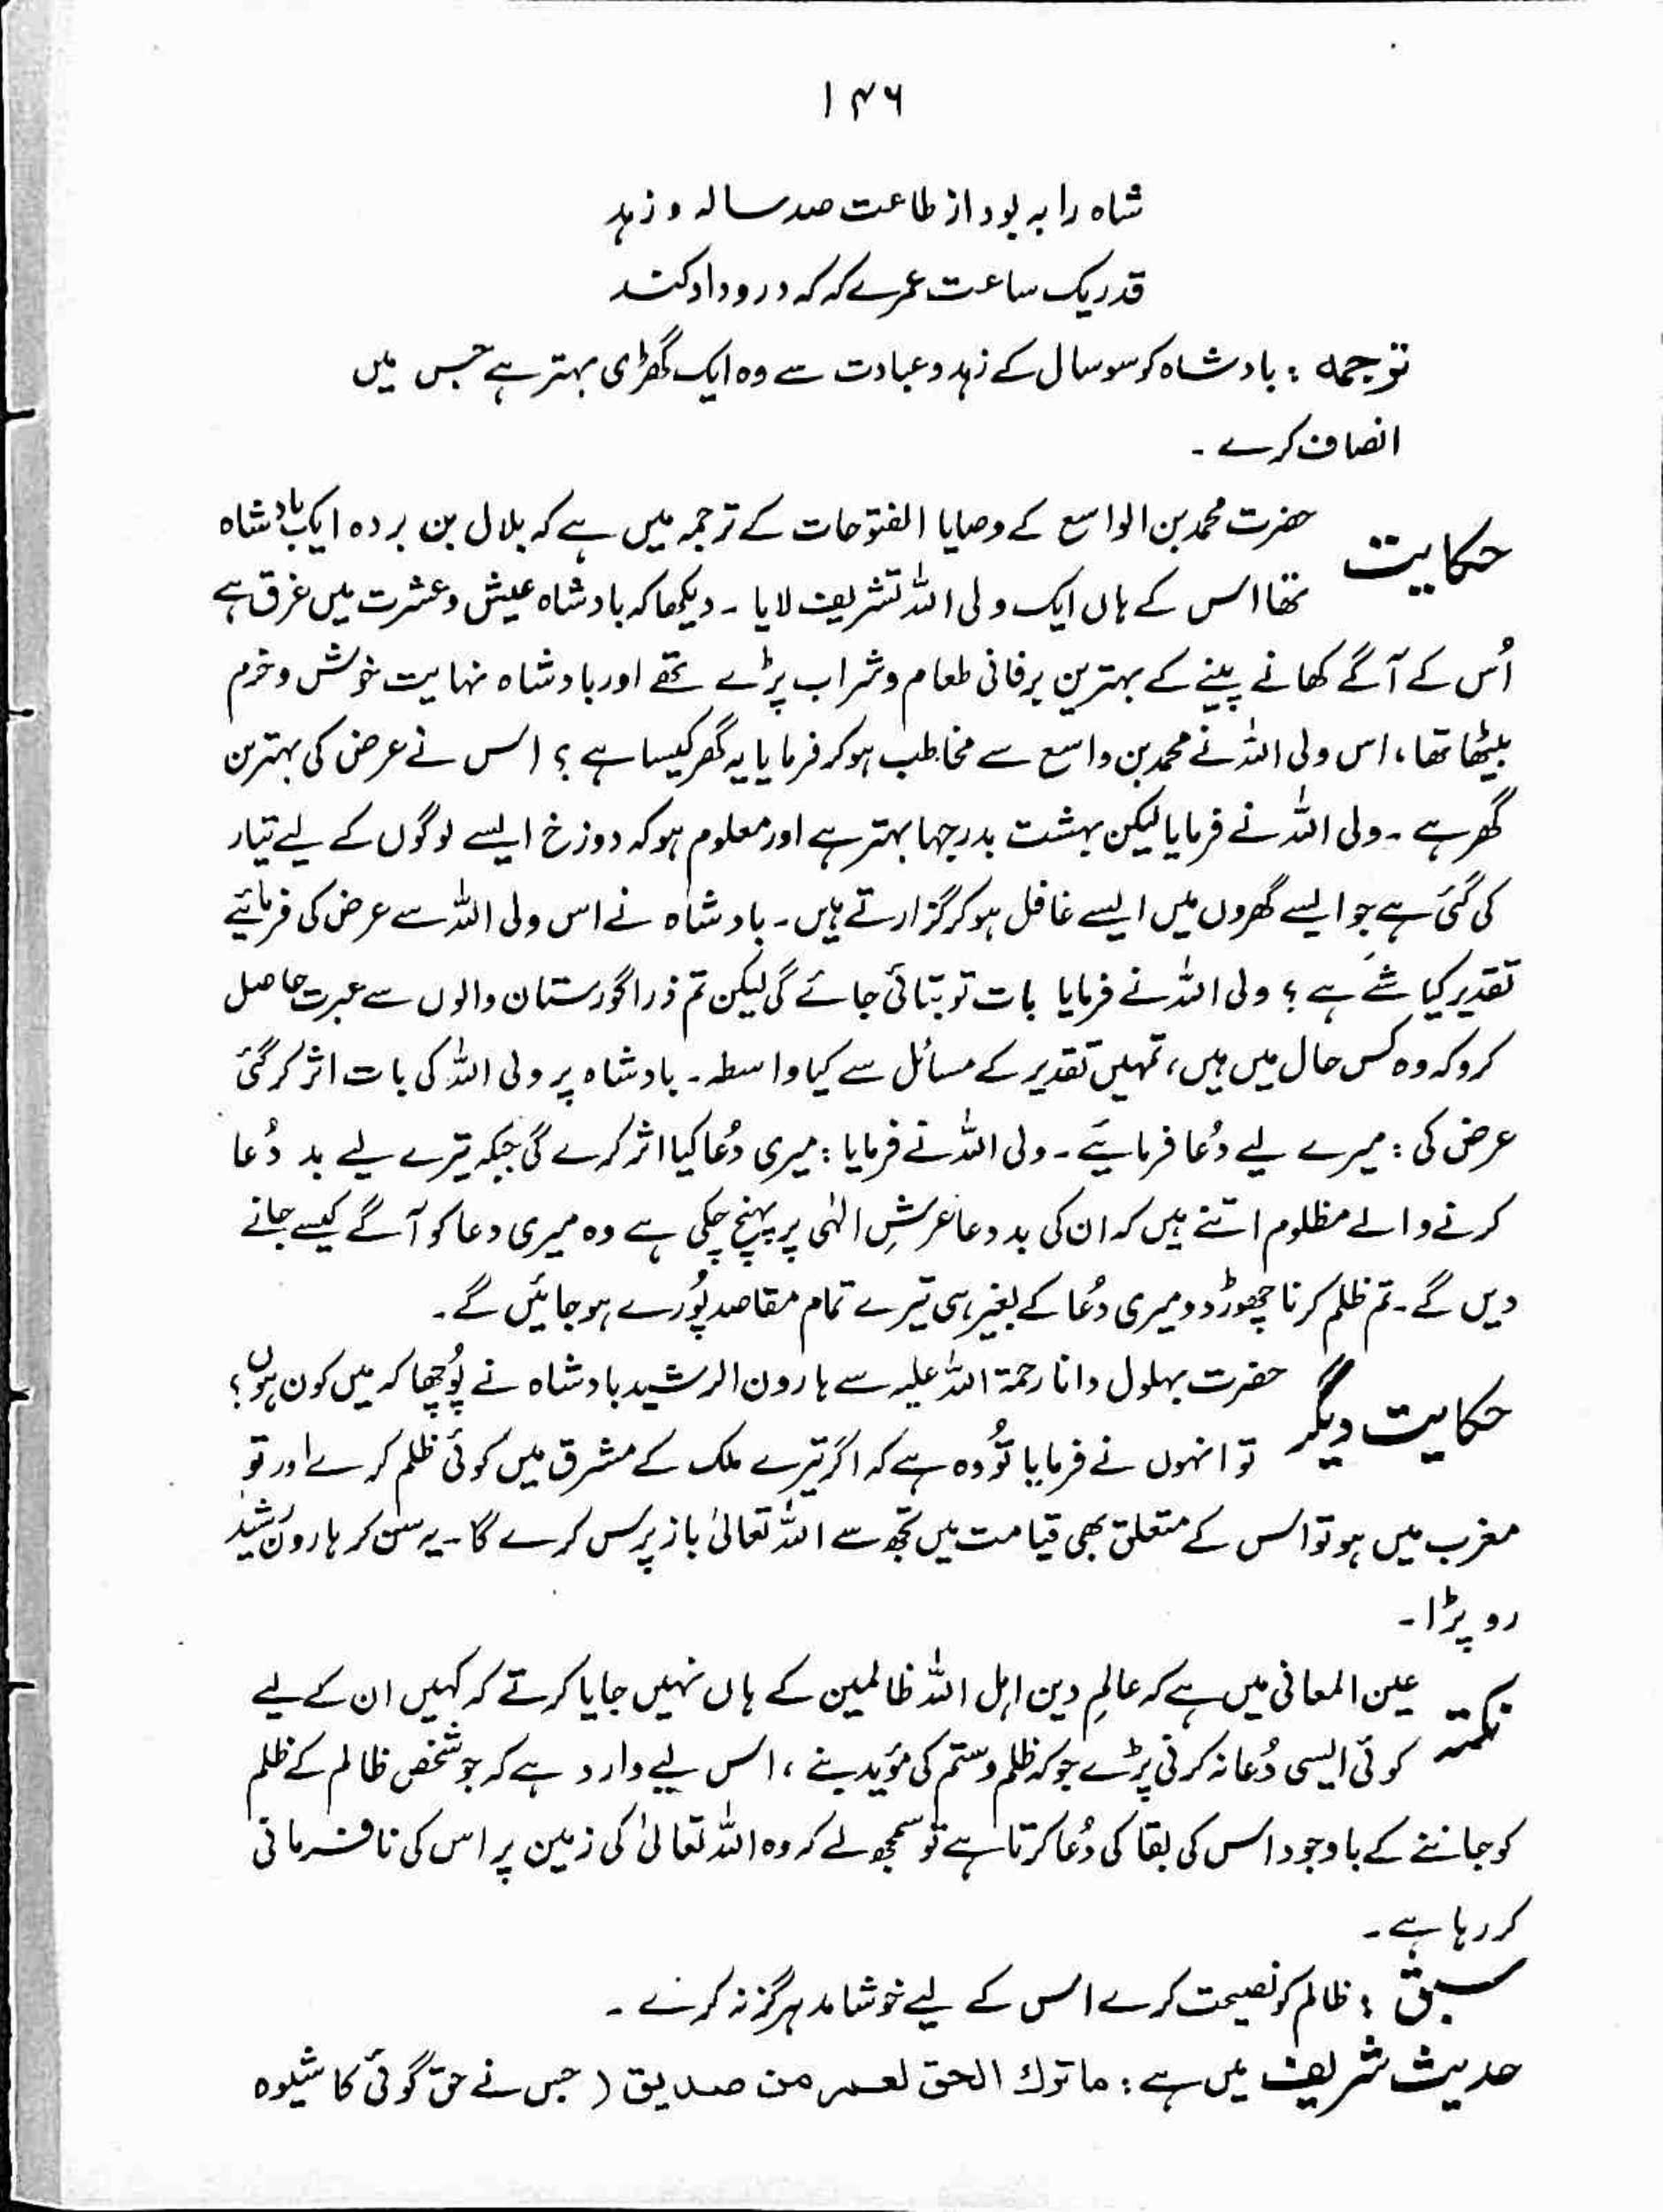 ۱۴۶
شاہ را بہ بود از طاعت صد سالہ و زہد
قدر یک ساعت عمرے کہ کہ درو داد کند
ترجمہ : بادشاہ کو سو سال کے زہد و عبادت سے وہ ایک گھڑی بہتر ہے جس میں
انصاف کرے ۔
حکایت حضرت محمد بن الواسع کے وصایا الفتوحات کے ترجمہ میں ہے کہ بلال بن بردہ ایک بادشاہ
تھا اس کے ہاں ایک ولی اللہ تشریف لایا ۔ دیکھا کہ بادشاہ عیش و عشرت میں غرق ہے
اُس کے آگے کھانے پینے کے بہترین برفانی طعام و شراب پڑے تھے اور بادشاہ نہایت خوش و خرم
بیٹھا تھا ، اس ولی اللہ نے محمد بن واسع سے مخاطب ہو کر فرمایا یہ گھر کیسا ہے ؟ اس نے عرض کی بہترین
گھر ہے ۔ ولی اللہ نے فرمایا لیکن بہشت بدرجہا بہتر ہے اور معلوم ہو کہ دوزخ ایسے لوگوں کے لیے تیار
کی گئی ہے جو ایسے گھروں میں ایسے غافل ہو کر گزارتے ہیں ۔ بادشاہ نے اس ولی اللہ سے عرض کی فرمائیے
تقدیر کیا شے ہے ؟ ولی اللہ نے فرمایا بات تو بتائی جائے گی لیکن تم ذرا گورستان والوں سے عبرت حاصل
کرو کہ وہ کس حال میں ہیں ، تمہیں تقدیر کے مسائل سے کیا واسطہ ۔ بادشاہ پر ولی اللہ کی بات اثر کر گئی
عرض کی : میرے لیے دُعا فرمائیے ۔ ولی اللہ نے فرمایا : میری دُعا کیا اثر کرے گی جبکہ تیرے لیے بد دُعا
کرنے والے مظلوم اتنے ہیں کہ ان کی بد دعا عرشِ الٰہی پر پہنچ چکی ہے وہ میری دعا کو آگے کیسے جانے
دیں گے ۔ تم ظلم کرنا چھوڑ دو میری دُعا کے بغیر ہی تیرے تمام مقاصد پُورے ہو جائیں گے ۔
حکایت دیگر حضرت بہلول دانا رحمۃ اللہ علیہ سے ہارون الرشید بادشاہ نے پُوچھا کہ میں کون ہوں ؟
تو انہوں نے فرمایا تُو وہ ہے کہ اگر تیرے ملک کے مشرق میں کوئی ظلم کرے اور تو
مغرب میں ہو تو اس کے متعلق بھی قیامت میں تجھ سے اللہ تعالیٰ باز پرس کرے گا ۔ یہ سن کر ہارون رشید
رو پڑا ۔
نکتہ عین المعانی میں ہے کہ عالمِ دین اہل اللہ ظالمین کے ہاں نہیں جایا کرتے کہ کہیں ان کے لیے
کوئی ایسی دُعا نہ کرنی پڑے جو کہ ظلم و ستم کی مؤید بنے ، اس لیے وارد ہے کہ جو شخص ظالم کے ظلم
کو جاننے کے باوجود اس کی بقا کی دُعا کرتا ہے تو سمجھ لے کہ وہ اللہ تعالیٰ کی زمین پر اس کی نافرمانی
کر رہا ہے ۔
سبق : ظالم کو نصیحت کرے اس کے لیے خوشامد ہرگز نہ کرے ۔
حدیث شریف میں ہے : ما ترك الحق لعمر من صديق ( جس نے حق گوئی کا شیوہ